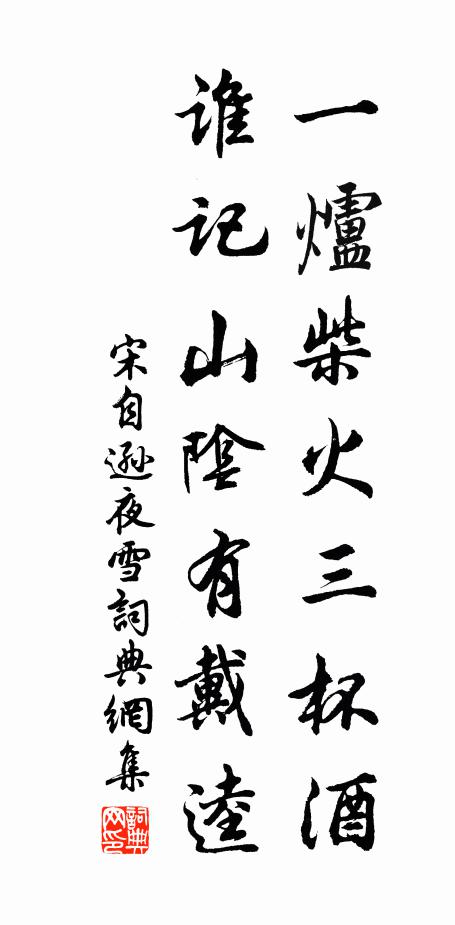 一爐柴火三杯酒
誰記山陰有戴逵
宋自遜夜雪詞典網集
詞典网印